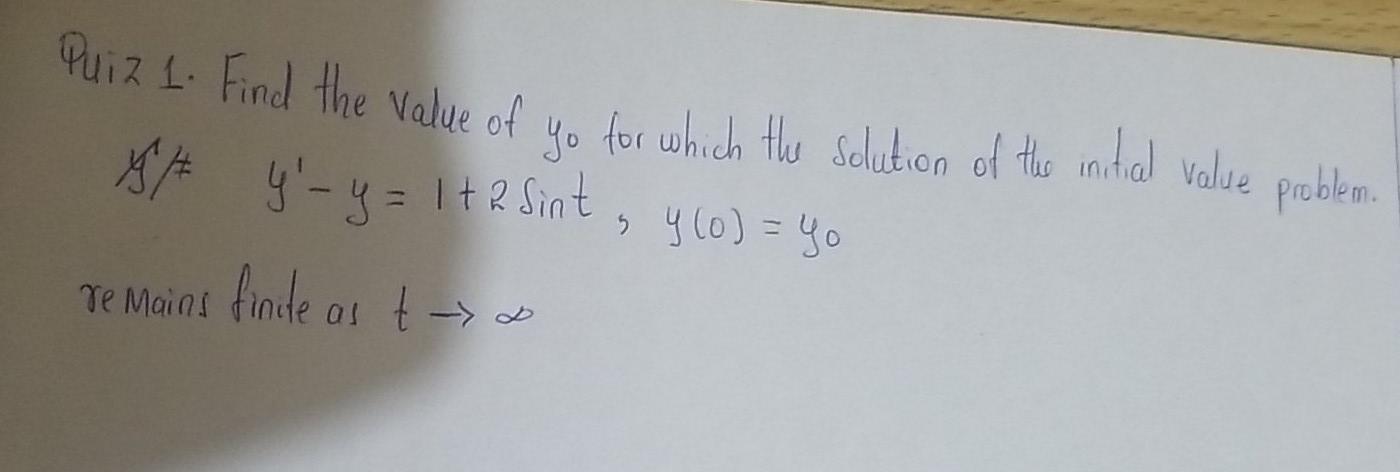 Quiz 1. Find the value of y₀ for which the solution of the initial value problem.
y' - y = 1 + 2 Sint, y(0) = y₀
remains finite as t → ∞